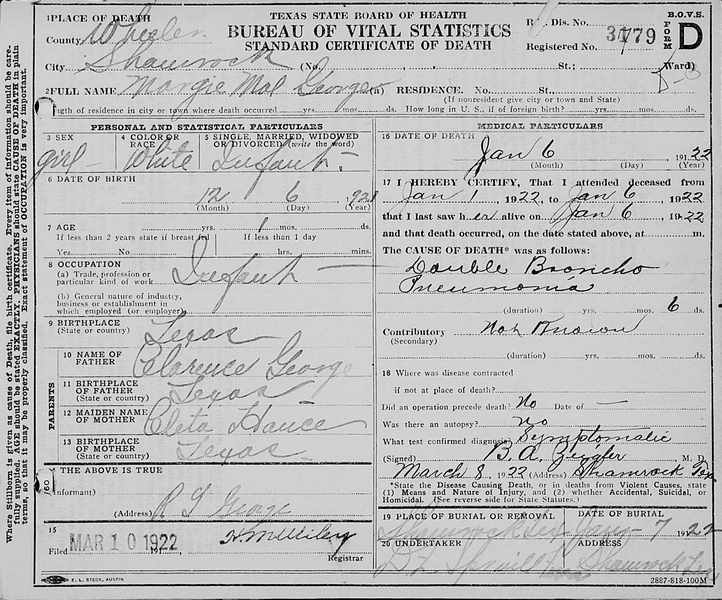 TEXAS STATE BOARD OF HEALTH
BUREAU OF VITAL STATISTICS
STANDARD CERTIFICATE OF DEATH
B.O.V.S.
FORM D
1 PLACE OF DEATH
County Wheeler
City Shamrock (No. St.; Ward)
Reg. Dis. No.
Registered No. 3779
2 FULL NAME Margie Mae George (a) RESIDENCE. No. St.
(If nonresident give city or town and State)
Length of residence in city or town where death occurred yrs. mos. ds. How long in U. S., if of foreign birth? yrs. mos. ds.
PERSONAL AND STATISTICAL PARTICULARS
3 SEX
girl
4 COLOR OR RACE
White
5 SINGLE, MARRIED, WIDOWED OR DIVORCED (write the word)
Infant
6 DATE OF BIRTH
12 6 1921
(Month) (Day) (Year)
7 AGE yrs. 1 mos. ds.
If less than 2 years state if breast fed If less than 1 day
Yes. No hrs. mins.
8 OCCUPATION
(a) Trade, profession or
particular kind of work Infant
(b) General nature of industry,
business or establishment in
which employed (or employer)
9 BIRTHPLACE
(State or country) Texas
PARENTS
10 NAME OF FATHER Clarence George
11 BIRTHPLACE OF FATHER
(State or country) Texas
12 MAIDEN NAME OF MOTHER Cleta Hance
13 BIRTHPLACE OF MOTHER
(State or country) Texas
14 THE ABOVE IS TRUE
(Informant)
(Address)
15
Filed MAR 10 1922
Registrar
E. L. STECK, AUSTIN
MEDICAL PARTICULARS
16 DATE OF DEATH
Jan 6 1922
(Month) (Day) (Year)
17 I HEREBY CERTIFY, That I attended deceased from
Jan 1 1922, to Jan 6 1922
that I last saw h er alive on Jan 6 1922
and that death occurred, on the date stated above, at m.
The CAUSE OF DEATH* was as follows:
Double Broncho
Pneumonia
(duration) yrs. mos. 6 ds.
Contributory Not Known
(Secondary)
(duration) yrs. mos. ds.
18 Where was disease contracted
if not at place of death?
Did an operation precede death? No Date of —
Was there an autopsy? No
What test confirmed diagnosis? Symptomatic
(Signed) B.A. Zeigler M. D.
March 8, 1922 (Address) Shamrock Tex
*State the Disease Causing Death, or in deaths from Violent Causes, state
(1) Means and Nature of Injury, and (2) whether Accidental, Suicidal, or
Homicidal. (See reverse side for State Statutes).
19 PLACE OF BURIAL OR REMOVAL DATE OF BURIAL
Shamrock Tex Jany 7 1922
20 UNDERTAKER ADDRESS
Shamrock Tex
2887-818-100M
Where Stillborn is given as cause of Death, file birth certificate. Every item of information should be care-
fully supplied. AGE should be stated EXACTLY. PHYSICIANS should state CAUSE OF DEATH in plain
terms, so that it may be properly classified. Exact statement of OCCUPATION is very important.